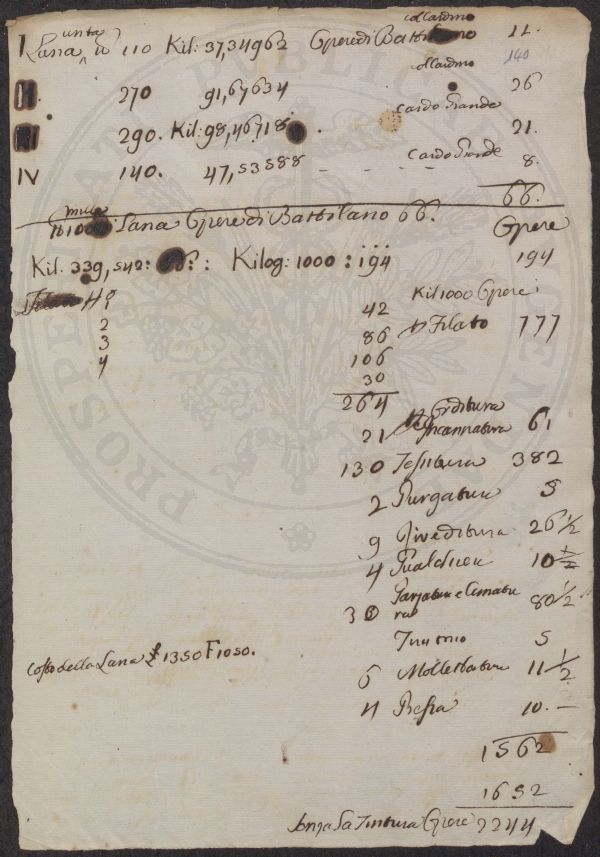 collardino
I Lana unta lb 110 Kil: 37,34962 Opere di Battilano 11.
140
collardino
II. 270 91,67634 26
Cardo Grande
III 290. Kil: 98,46718 21.
Cardo Grande
IV 140. 47,53588 8.
66.
mille
Lana Opere di Battilano 66. Opere
Kil. 339,542: 66: : Kilog: 1000 : 194 194
Kil 1000 Opere:
1 42
2 86 Filato 777
3 106
4 30
264
Orditura
21 Incannatura 61
130 Tessitura 382
2 Purgatura 5
9 Riveditura 26 1/2
4 Gualchiera 10 1/2
Garzatura e Cimatu
ra 80 1/2
5
6 Mollettatura 11 1/2
Costo della Lana £ 1350 F 1050.
4 Pressa 10. —
1562
1652
senza la Tintura Opere 2244